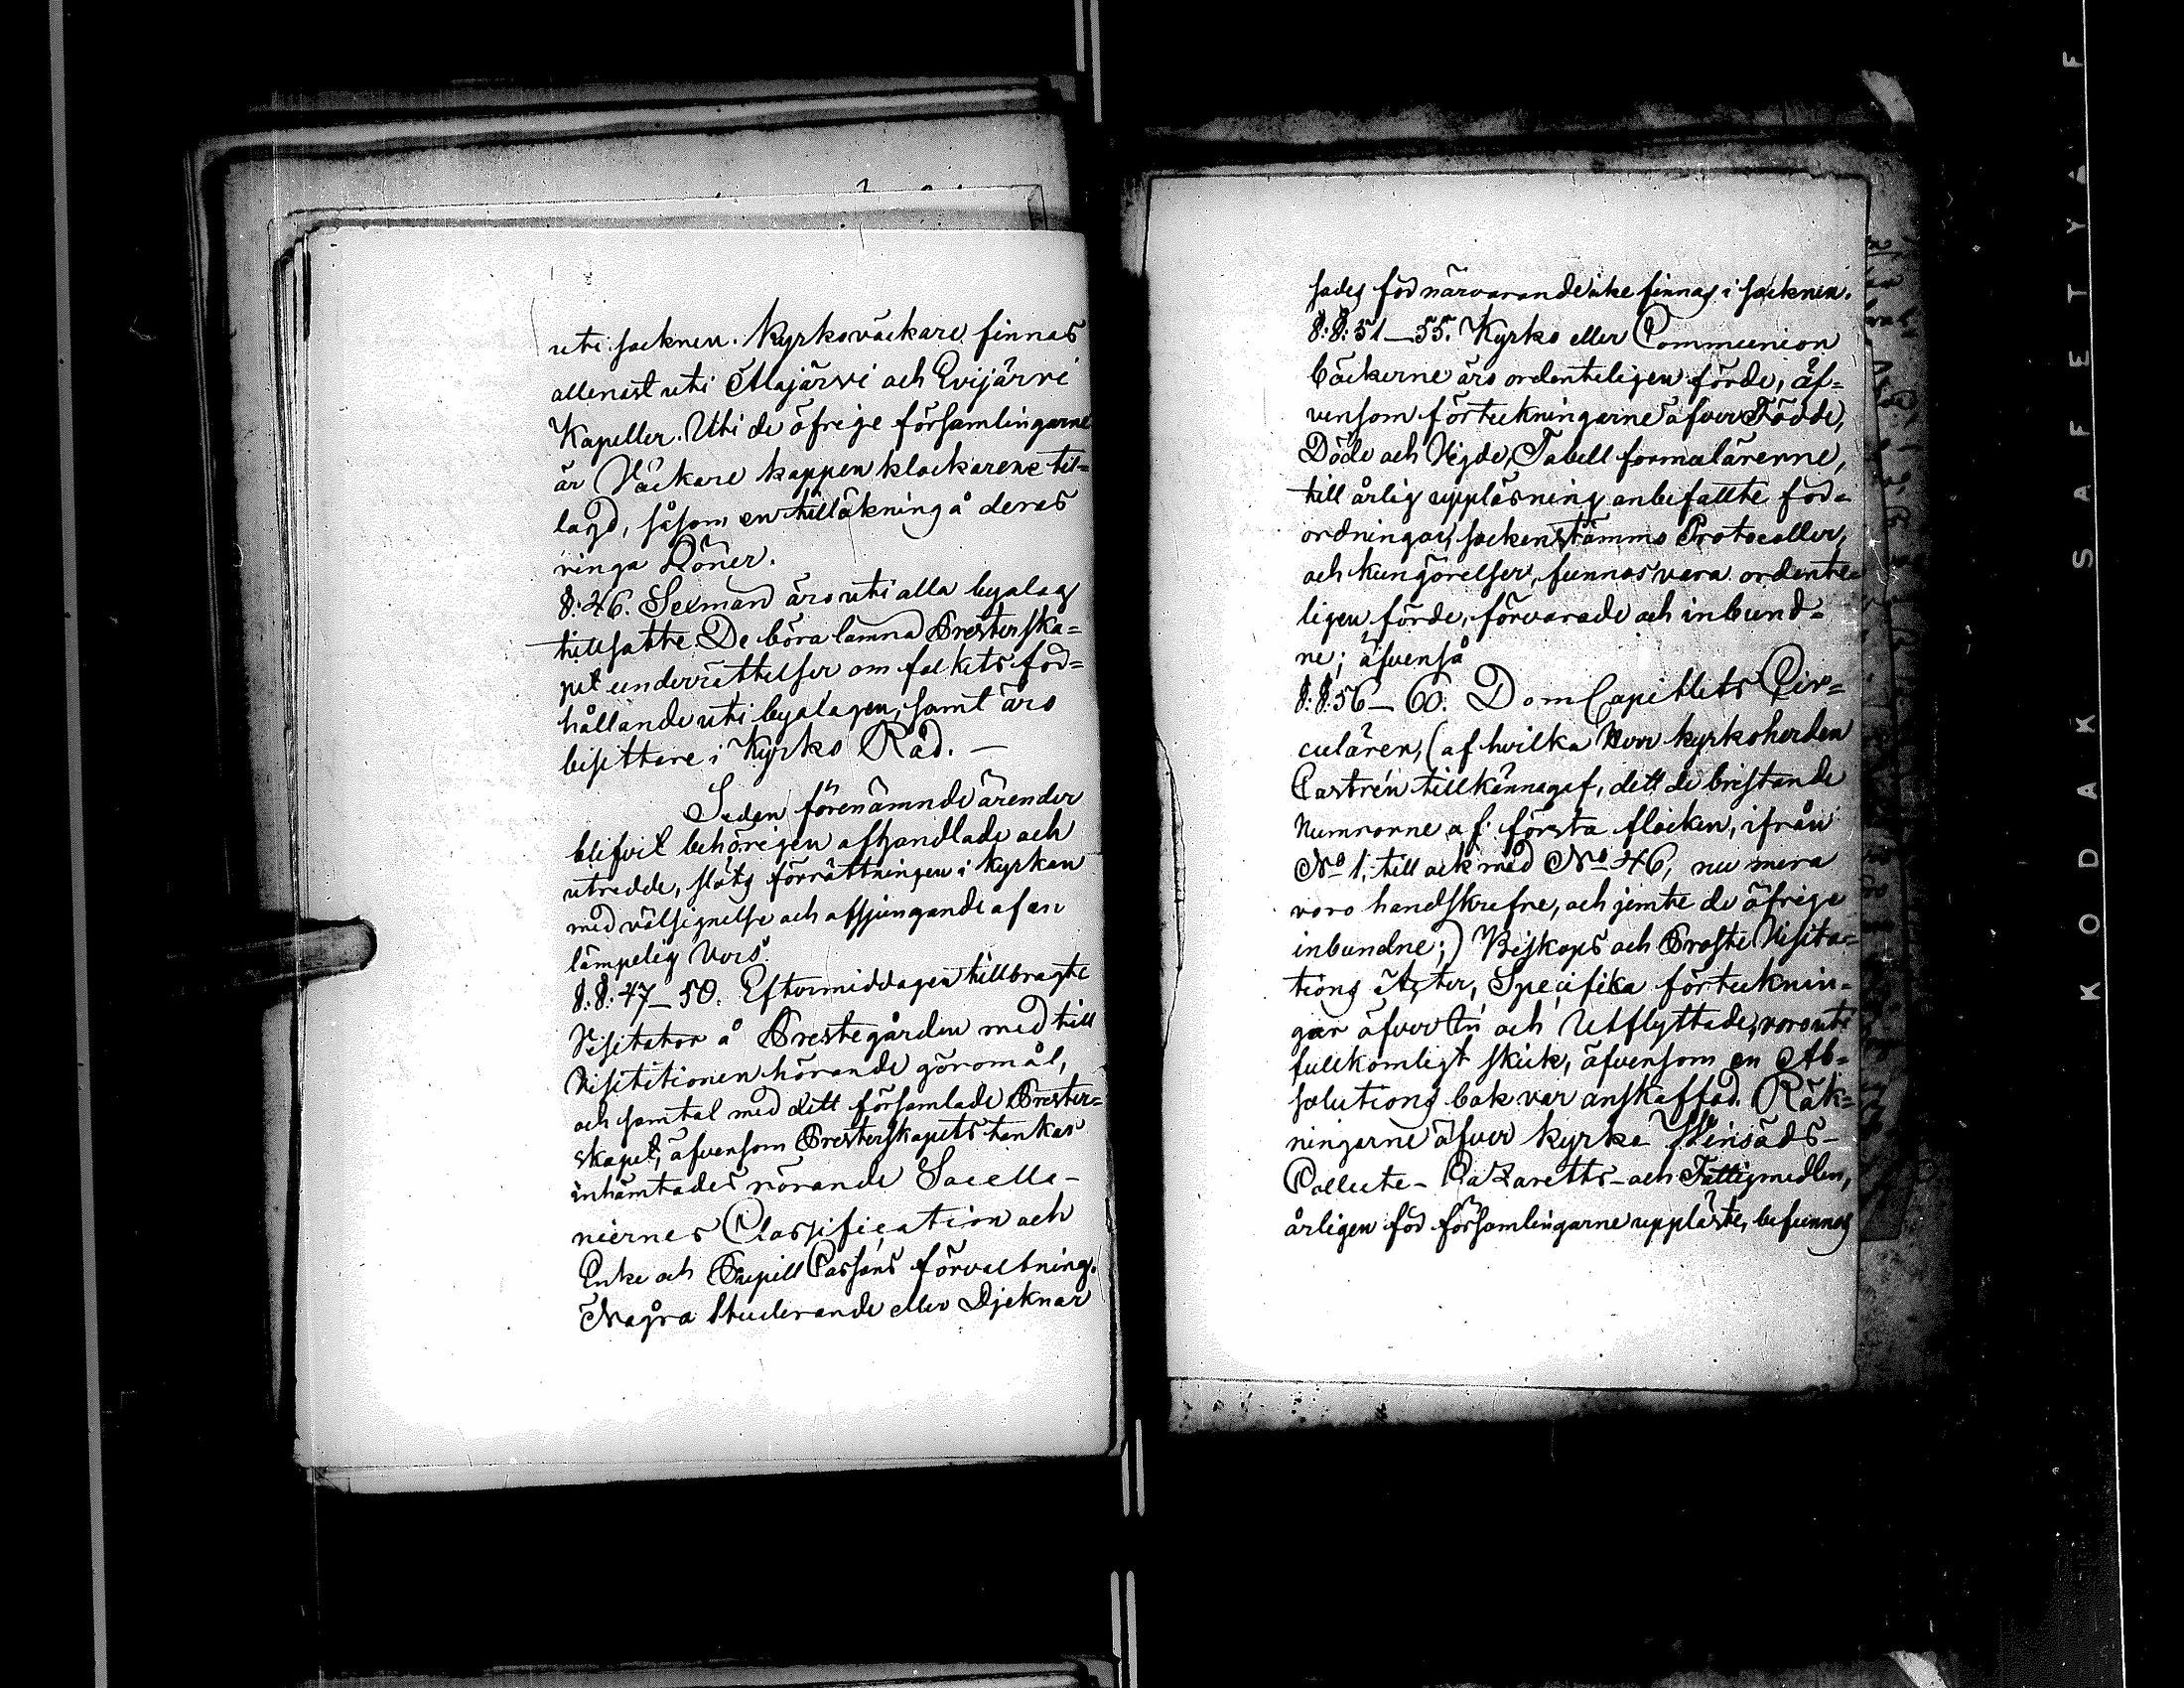 uti socknen. Kyrkoväckare finnas
allenast uti Alajärvi och Evijärvi
Kapeller. Uti de öfrige församlingarne
är Väckare kappen klockarene til-
lagd, såsom en tillökning å deras
ringa Löner.
§: 46. Sexmän äro uti alla byalag
tillsatte. De böra lämna Presterska-
pet underrättelser om folkets för-
hållande uti byalagen, samt äro
bisittare i Kyrko Råd. —
Sedan förenämnde ärender
blifvit behörigen afhandlade och
utredde, slöts förrättningen i kyrkan
med välsignelse och afsjungande af en
lämpelig Vers.
§.§: 47–50. Eftermiddagen tillbragte
Visitator å Prestegården med till
Visititionen hörande göromål,
och samtal med dett församlade Prester-
skapet, äfvensom Presterskapets tankar
inhämtades rörande Sacella-
niernes Classification och
Enke och Pupill Cassans förvaltning.
Några Studerande eller Djeknar
sades för närvarande icke finnas i socknen.
§.§: 51–55. Kyrko eller Communion
böckerne äro ordenteligen förde, äf-
vensom förteckningarne äfver Födde,
Döde och Vigde, Tabell formulärerne,
till årlig uppläsning anbefallte för-
ordningar, sockenstämmo Protocoller,
och kungörelser, funnos vara ordente-
ligen förde, förvarade och inbund-
ne; äfvenså
§.§. 56–60. Dom Capitlets Cir-
culärer, (af hvilka Herr kyrkoherden
Castrén tillkännagaf, dett de bristande
Numrorne af första flocken, ifrån
No 1. till och med No 46, nu mera
voro handskrefne, och jemte de öfrige
inbundne;) Biskops och Proste Visita-
tions Acter, Specifika förtecknin-
gar äfver In och Utflyttade, voro uti
fullkomligt skick, äfvensom en Ab-
solutions bok var anskaffad. Räk-
ningarne äfver kyrko Winsäds-
Collecte- Lazaretts- och Fattigmedlen,
årligen för församlingarne uppläste, befunnos
KODAK SAFETY F